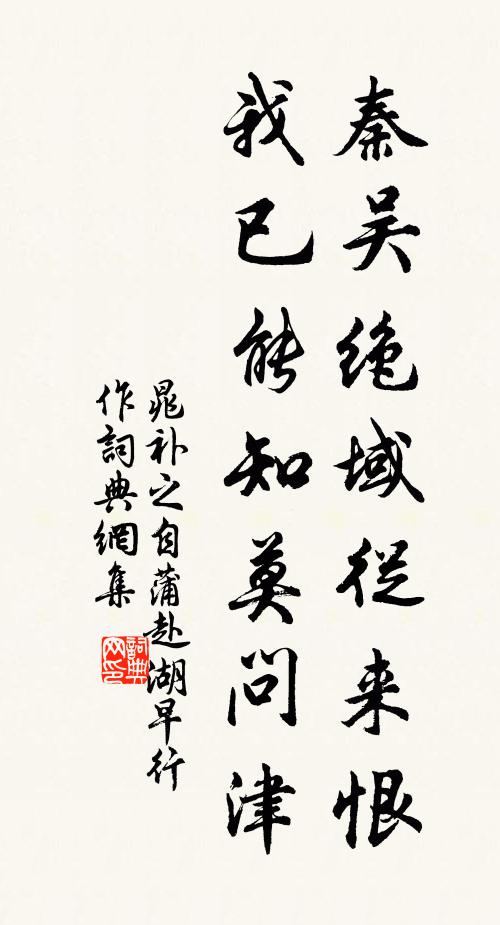 秦吴绝域從来恨
我已能知莫问津
晁补之自蒲赴湖早行
作詞典網集
詞典网印